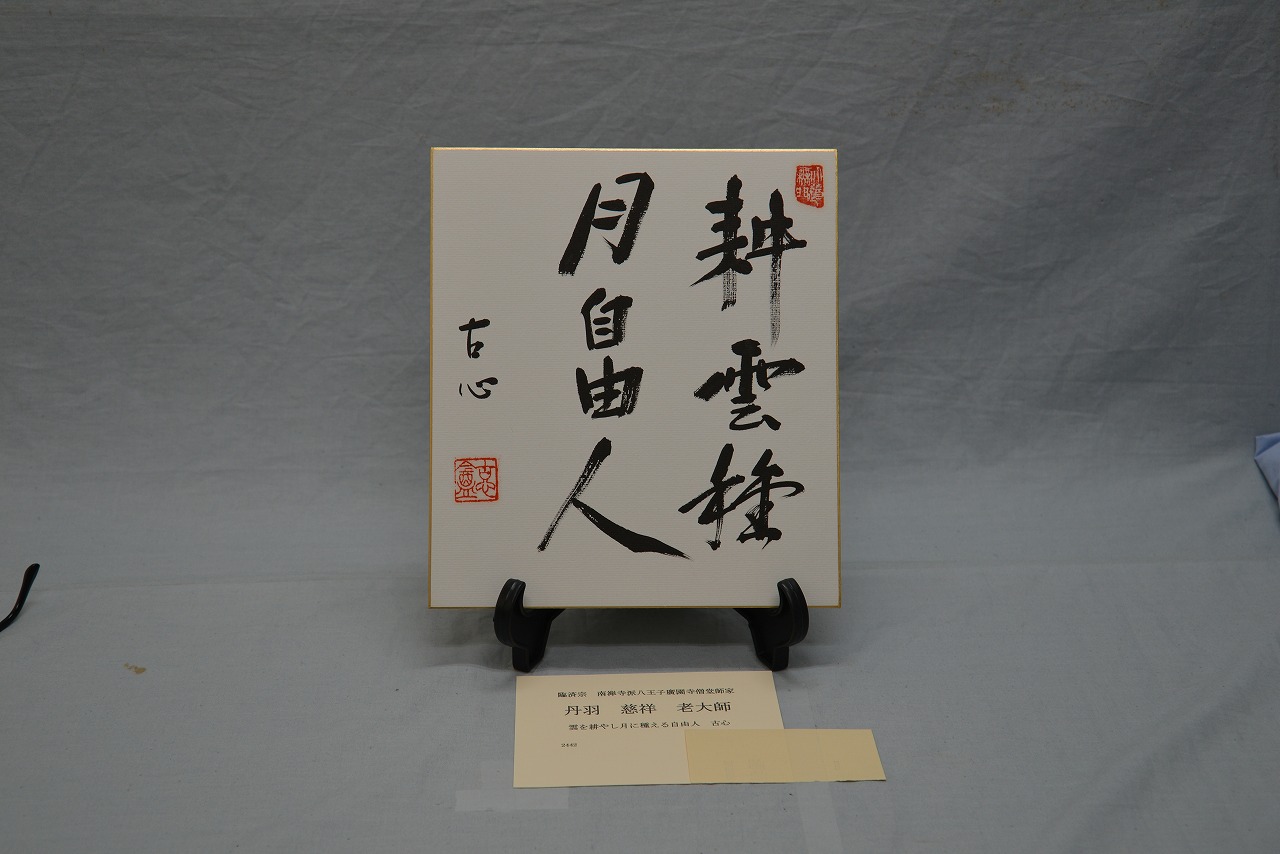 耕雲種
月自由人
古心
臨済宗　南禅寺派八王子廣園寺僧堂師家
丹羽　慈祥　老大師
雲を耕やし月に種える自由人　古心